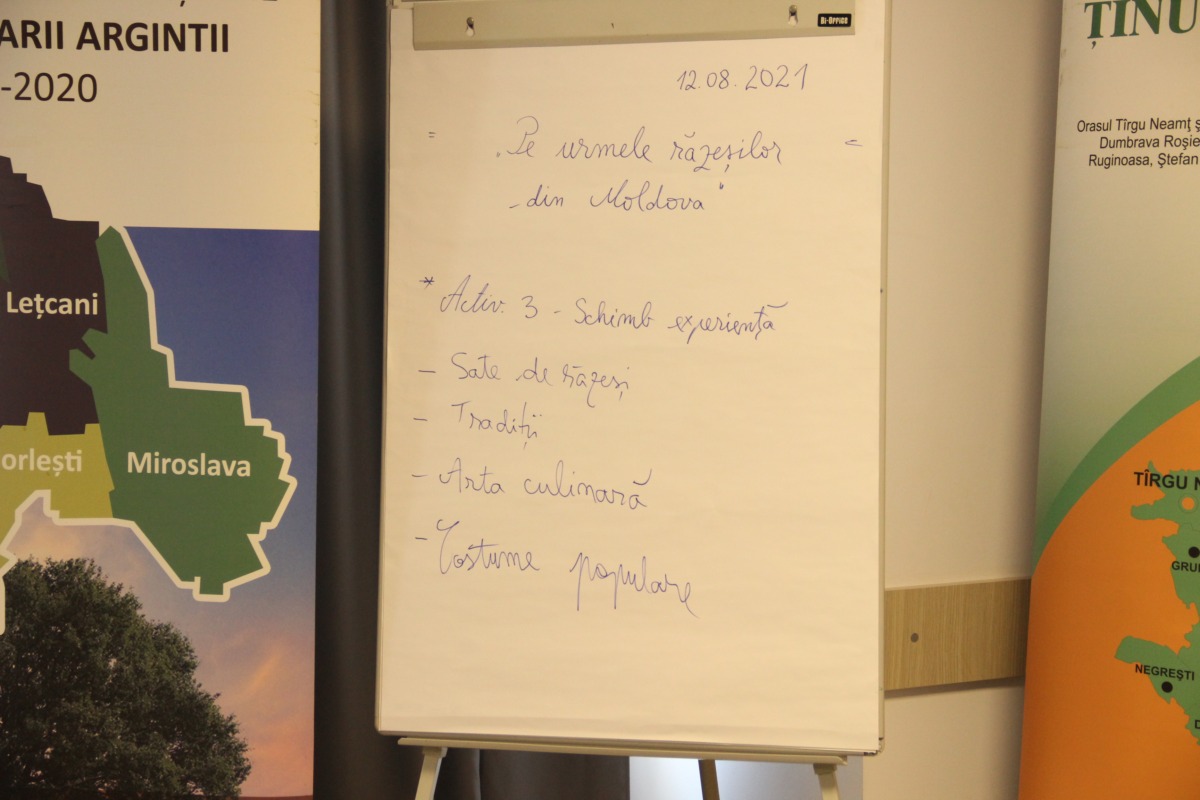 ARII ARGINTII
-2020
Lețcani
orlești
Miroslava
Bi-Office
12.08.2021
= "Pe urmele răzeșilor =
din Moldova"
* Activ. 3 - Schimb experiență
- Sate de răzeși
- Tradiții
- Arta culinară
- Costume populare
ȚINU
Orasul Tîrgu Neamţ ş
Dumbrava Roşie
Ruginoasa, Ştefan
TÎRGU N
GRU
NEGREŞTI
D